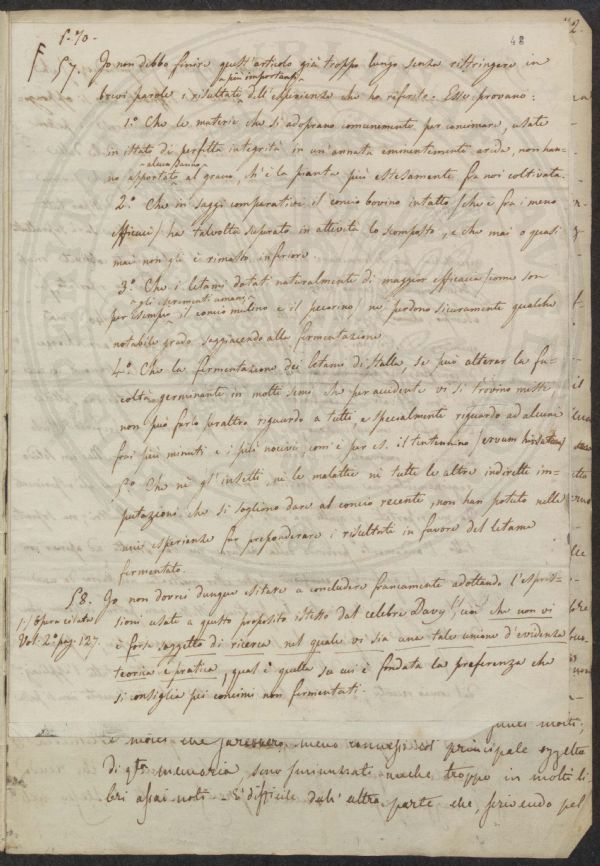 §. 70.
48
57. Io non debbo finire quest'articolo già troppo lungo senza ristringere in
più importanti
brevi parole i risultati dell'esperienze che ho riferite. Esse provano:
1.° Che le materie che si adoprano comunemente per concimare, usate
in istato di perfetta integrità in un'annata eminentemente arida, non han-
alcun danno
no apportato al grano, ch'è la pianta più estesamente fra noi coltivata.
2.° Che in saggi comparativi il concio bovino intatto (che è fra i meno
efficaci) ha talvolta superato in attività lo scomposto, e che mai o quasi
mai non gli è rimasto inferiore
3.° Che i letami dotati naturalmente di maggior efficacia (come son
gli escrementi umani
per esempio il concio mulino e il pecorino) ne perdono sicuramente qualche
notabile grado soggiacendo alla fermentazione
4.° Che la fermentazione dei letami di stalla, se può alterar la fa-
coltà germinante in molti semi che per accidente vi si trovino misti
non può farlo peraltro riguardo a tutti e specialmente riguardo ad alcuni
frai più minuti e i più nocivi, com'è per es. il tentennino (ervum hirsutum)
5.° Che nè gl'insetti, nè le malattie nè tutte le altre indirette im-
putazioni che si sogliono dare al concio recente, non han potuto nelle
mie esperienze far preponderare i risultati in favore del letame
fermentato.
58. Io non dovrei dunque esitare a concludere francamente adottando l'espres-
1.) Opera citata
sioni usate a questo proposito istesso dal celebre Davy, cioè che non vi
Vol. 2.° pag. 127.
è forse soggetto di ricerca nel quale vi sia una tale unione d'evidenza
teorica e pratica, qual è quella su cui è fondata la preferenza che
si consiglia pei concimi non fermentati.
molti,
e molti che sarebbero meno connessi col principale oggetto
di qta memoria sono annunziati anche troppo in molti li
bri assai noti - È difficile dall'altra parte che, scrivendo pel